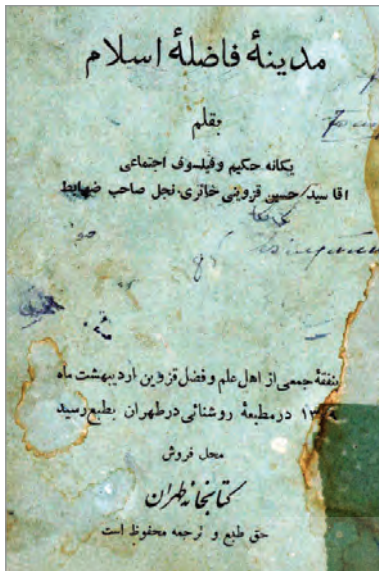 مدینهٔ فاضلهٔ اسلام
بقلم
یگانه حکیم و فیلسوف اجتماعی
اقا سید حسین قزوینی حائری نجل صاحب ضوابط
بنفقهٔ جمعی از اهل علم و فضل قزوین اردیبهشت ماه
در مطبعهٔ روشنائی در طهران بطبع رسید
محل فروش
کتابخانه طهران
حق طبع و ترجمه محفوظ است